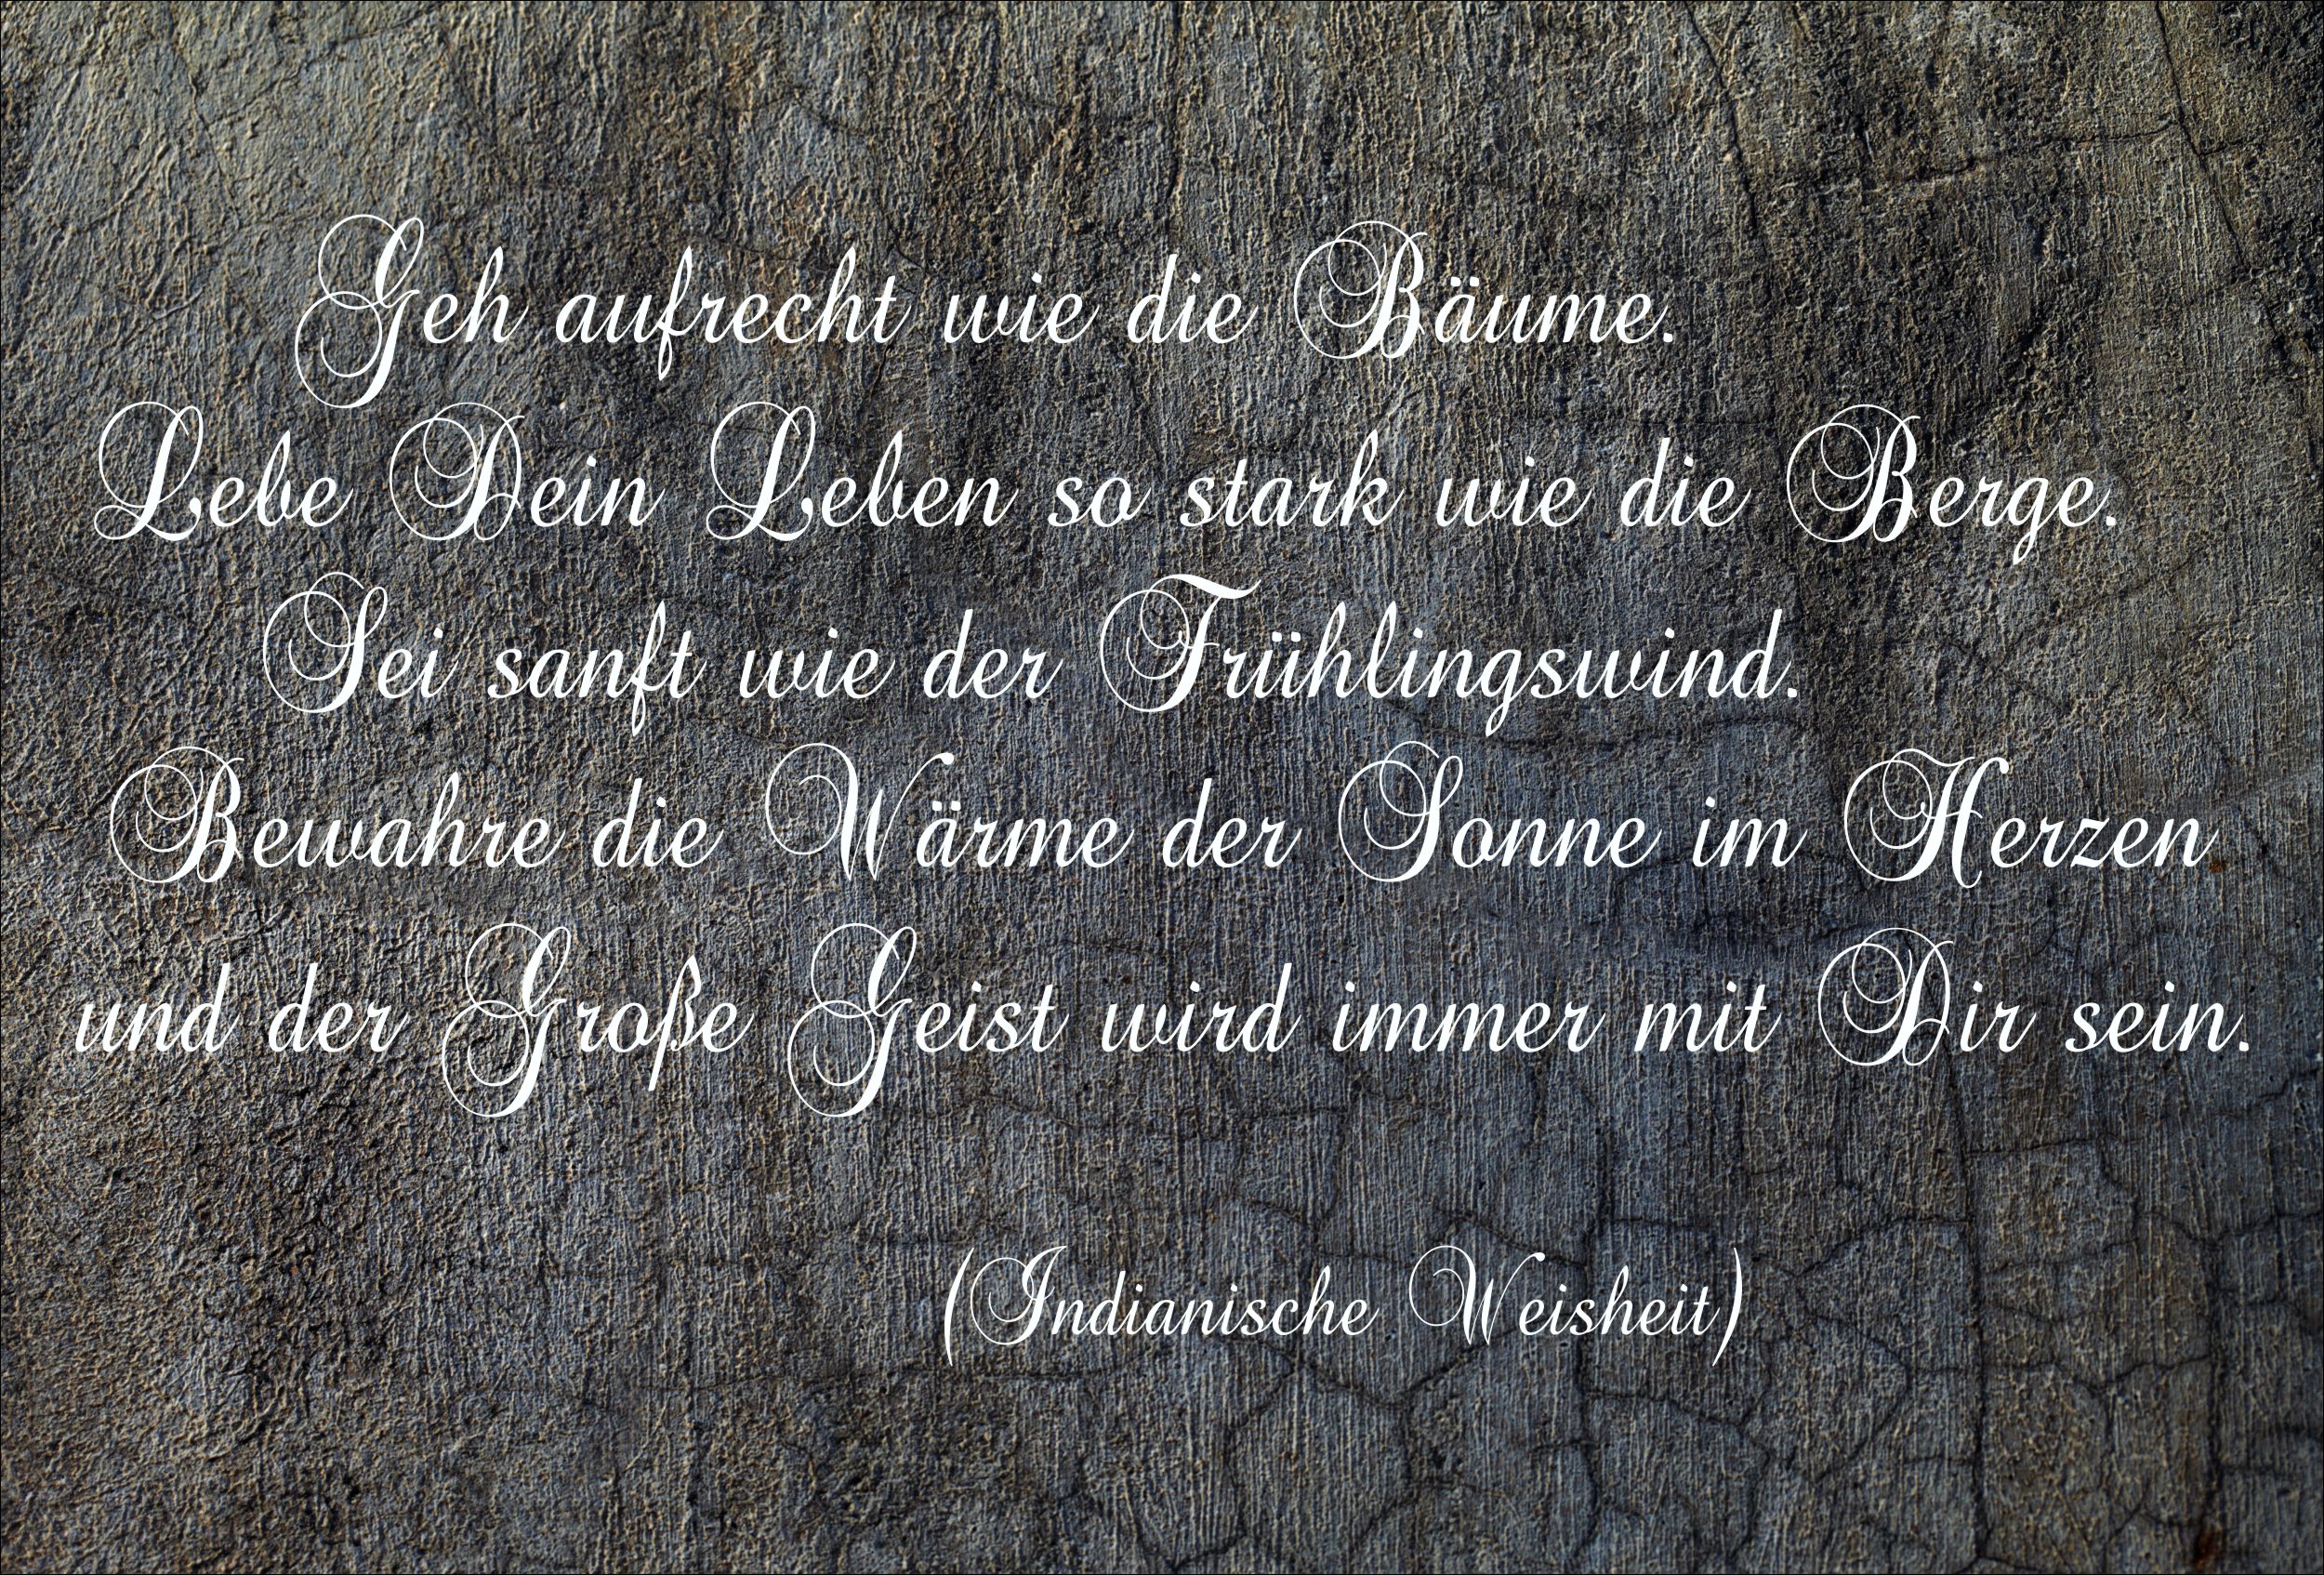 Geh aufrecht wie die Bäume.
Lebe Dein Leben so stark wie die Berge.
Sei sanft wie der Frühlingswind.
Bewahre die Wärme der Sonne im Herzen
und der Große Geist wird immer mit Dir sein.
(Indianische Weisheit)